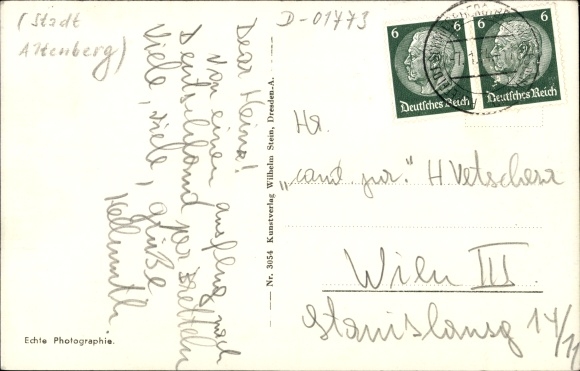 (Stadt
Altenberg)
D-01773
Dear Heinz!
Von einem Ausflug nach
Deutschland per Bretteln
viele, viele, grüße
Hellmuth
Echte Photographie.
Nr. 3054 Kunstverlag Wilhelm Stein, Dresden-A.
6 6
Deutsches Reich
6 6
Deutsches Reich
Hr.
„cand jur." H Vetschera
Wien III.
Stanislausg 14/11